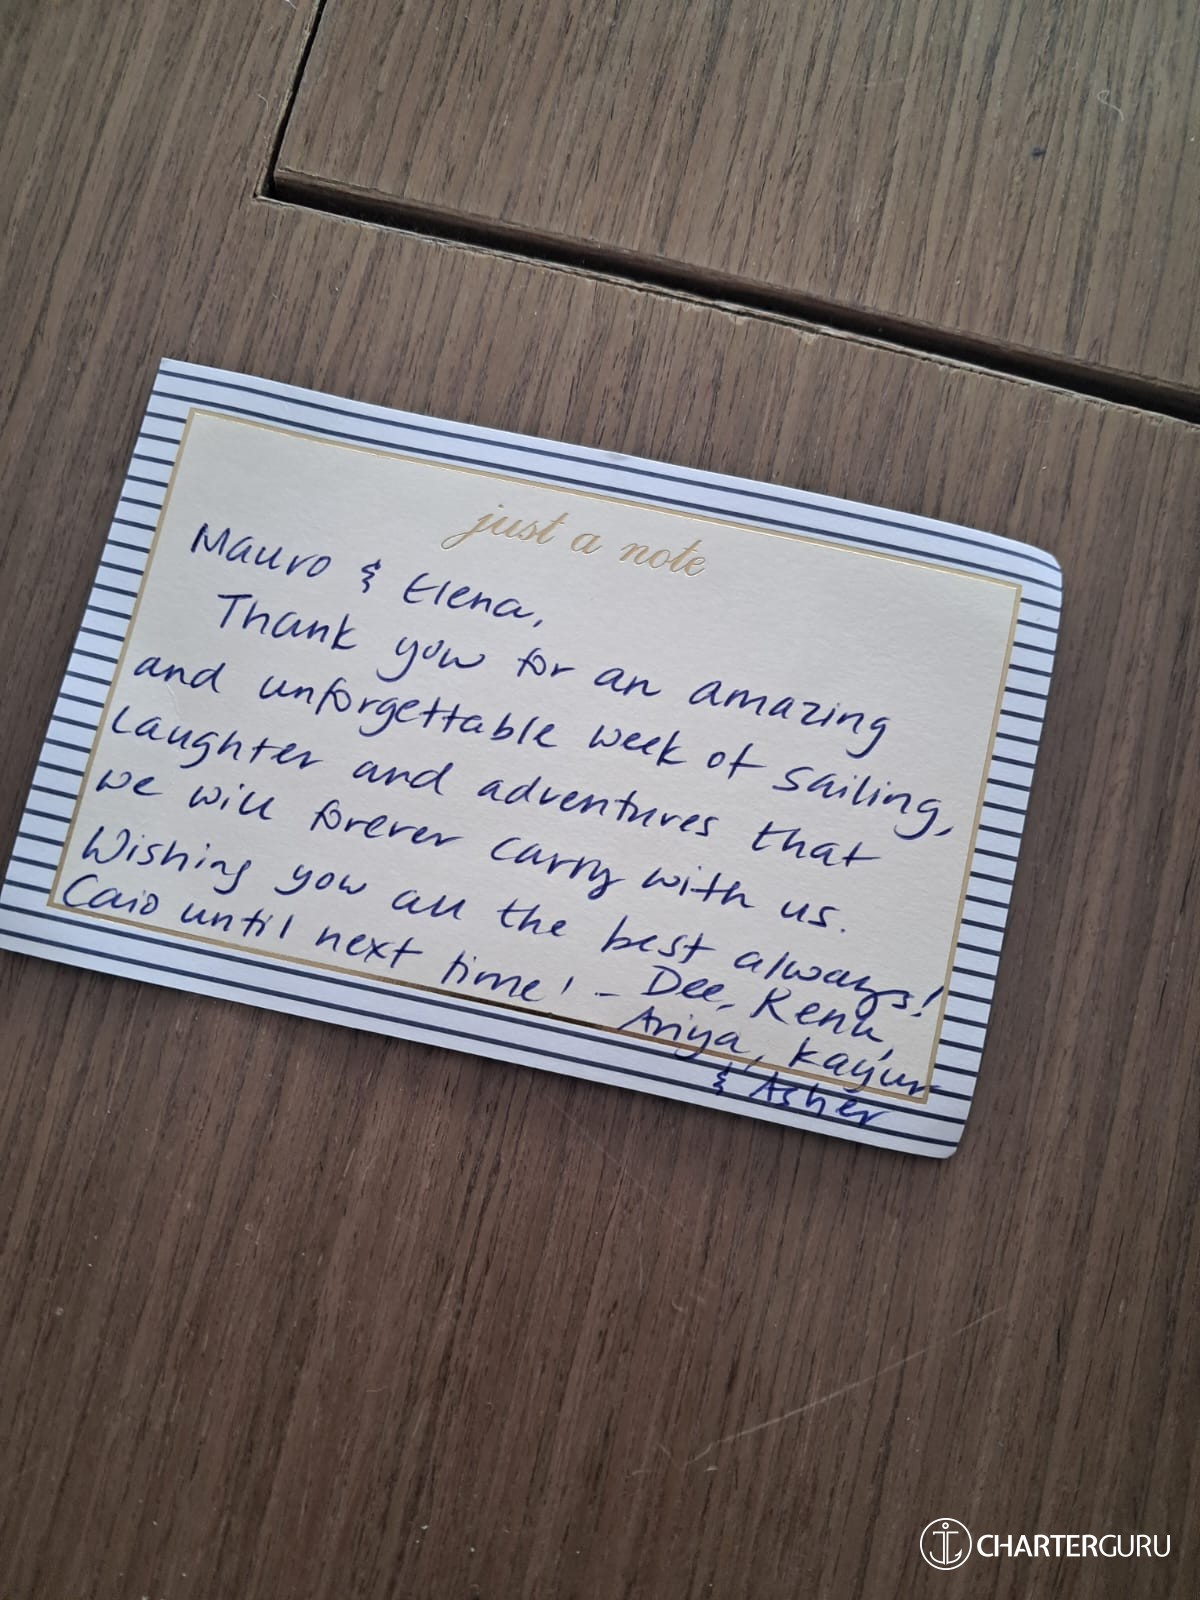 just a note
Mauro & Elena,
Thank you for an amazing
and unforgettable week of sailing,
Laughter and adventures that
we will forever carry with us.
Wishing you all the best always!
Caio until next time! - Dee,
Ariya, Kayur
& Asher
CHARTERGURU